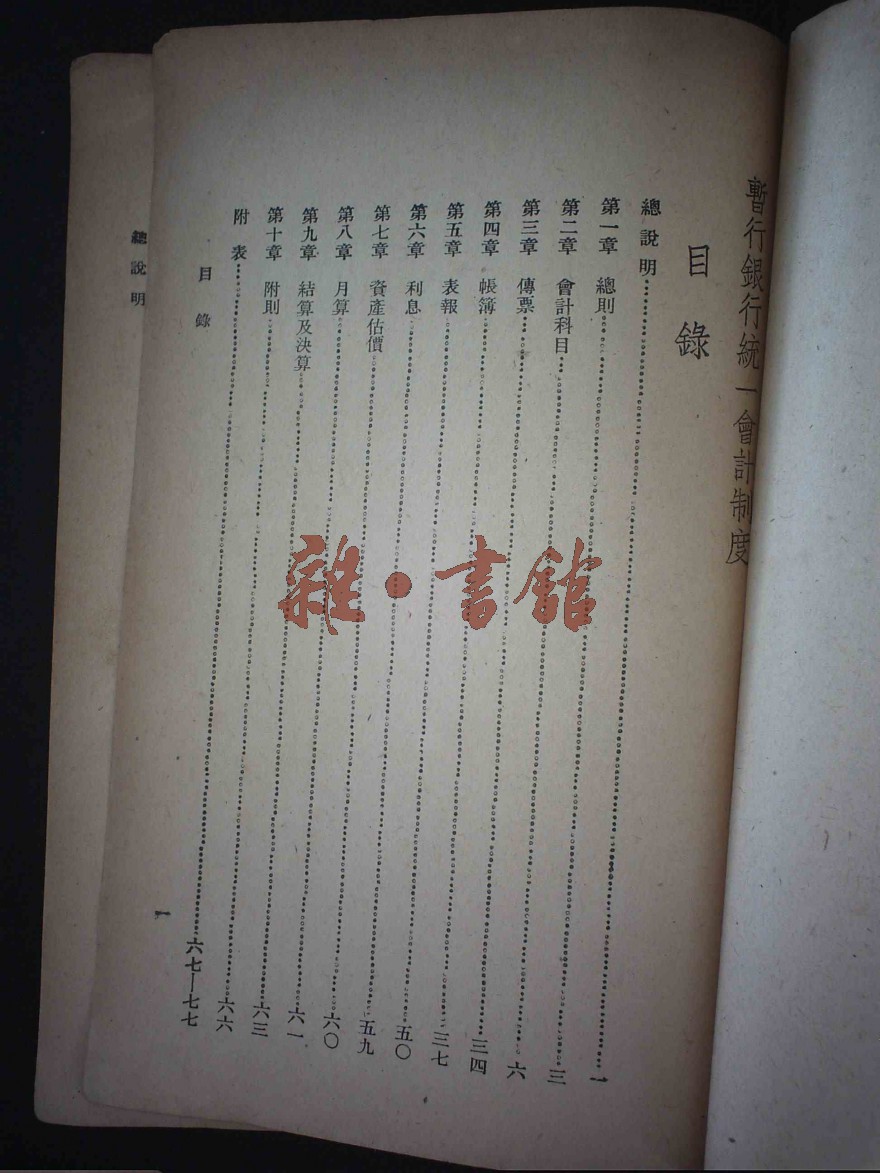 暫行銀行統一會計制度
目錄
總說明……一
第一章 總則……三
第二章 會計科目……六
第三章 傳票……三四
第四章 帳簿……三七
第五章 表報……五〇
第六章 利息……五九
第七章 資產估價……六〇
第八章 月算……六一
第九章 結算及決算……六三
第十章 附則……六六
附表……六七—七七
目錄
一
總說明
雜·書館